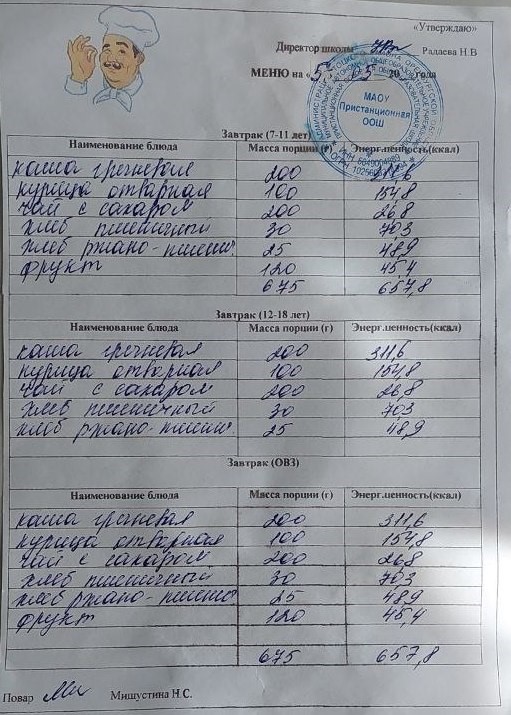 «Утверждаю»
Директор школы Радаева Н.В
МЕНЮ на «5» 05 20 года
МАОУ
Пристанционная
ООШ
Завтрак (7-11 лет)
Наименование блюда Масса порции (г) Энерг.ценность(ккал)
каша гречневая 200 311,6
курица отварная 100 154,8
чай с сахаром 200 26,8
хлеб пшеничный 30 70,3
хлеб ржано-пшенич. 25 48,9
фрукт 120 45,4
675 657,8
Завтрак (12-18 лет)
Наименование блюда Масса порции (г) Энерг.ценность(ккал)
каша гречневая 200 311,6
курица отварная 100 154,8
чай с сахаром 200 26,8
хлеб пшеничный 30 703
хлеб ржано-пшенич. 25 48,9
Завтрак (ОВЗ)
Наименование блюда Масса порции (г) Энерг.ценность(ккал)
каша гречневая 200 311,6
курица отварная 100 154,8
чай с сахаром 200 26,8
хлеб пшеничный 30 703
хлеб ржано-пшенич 25 489
фрукт 120 45,4
675 657,8
Повар Мишустина Н.С.